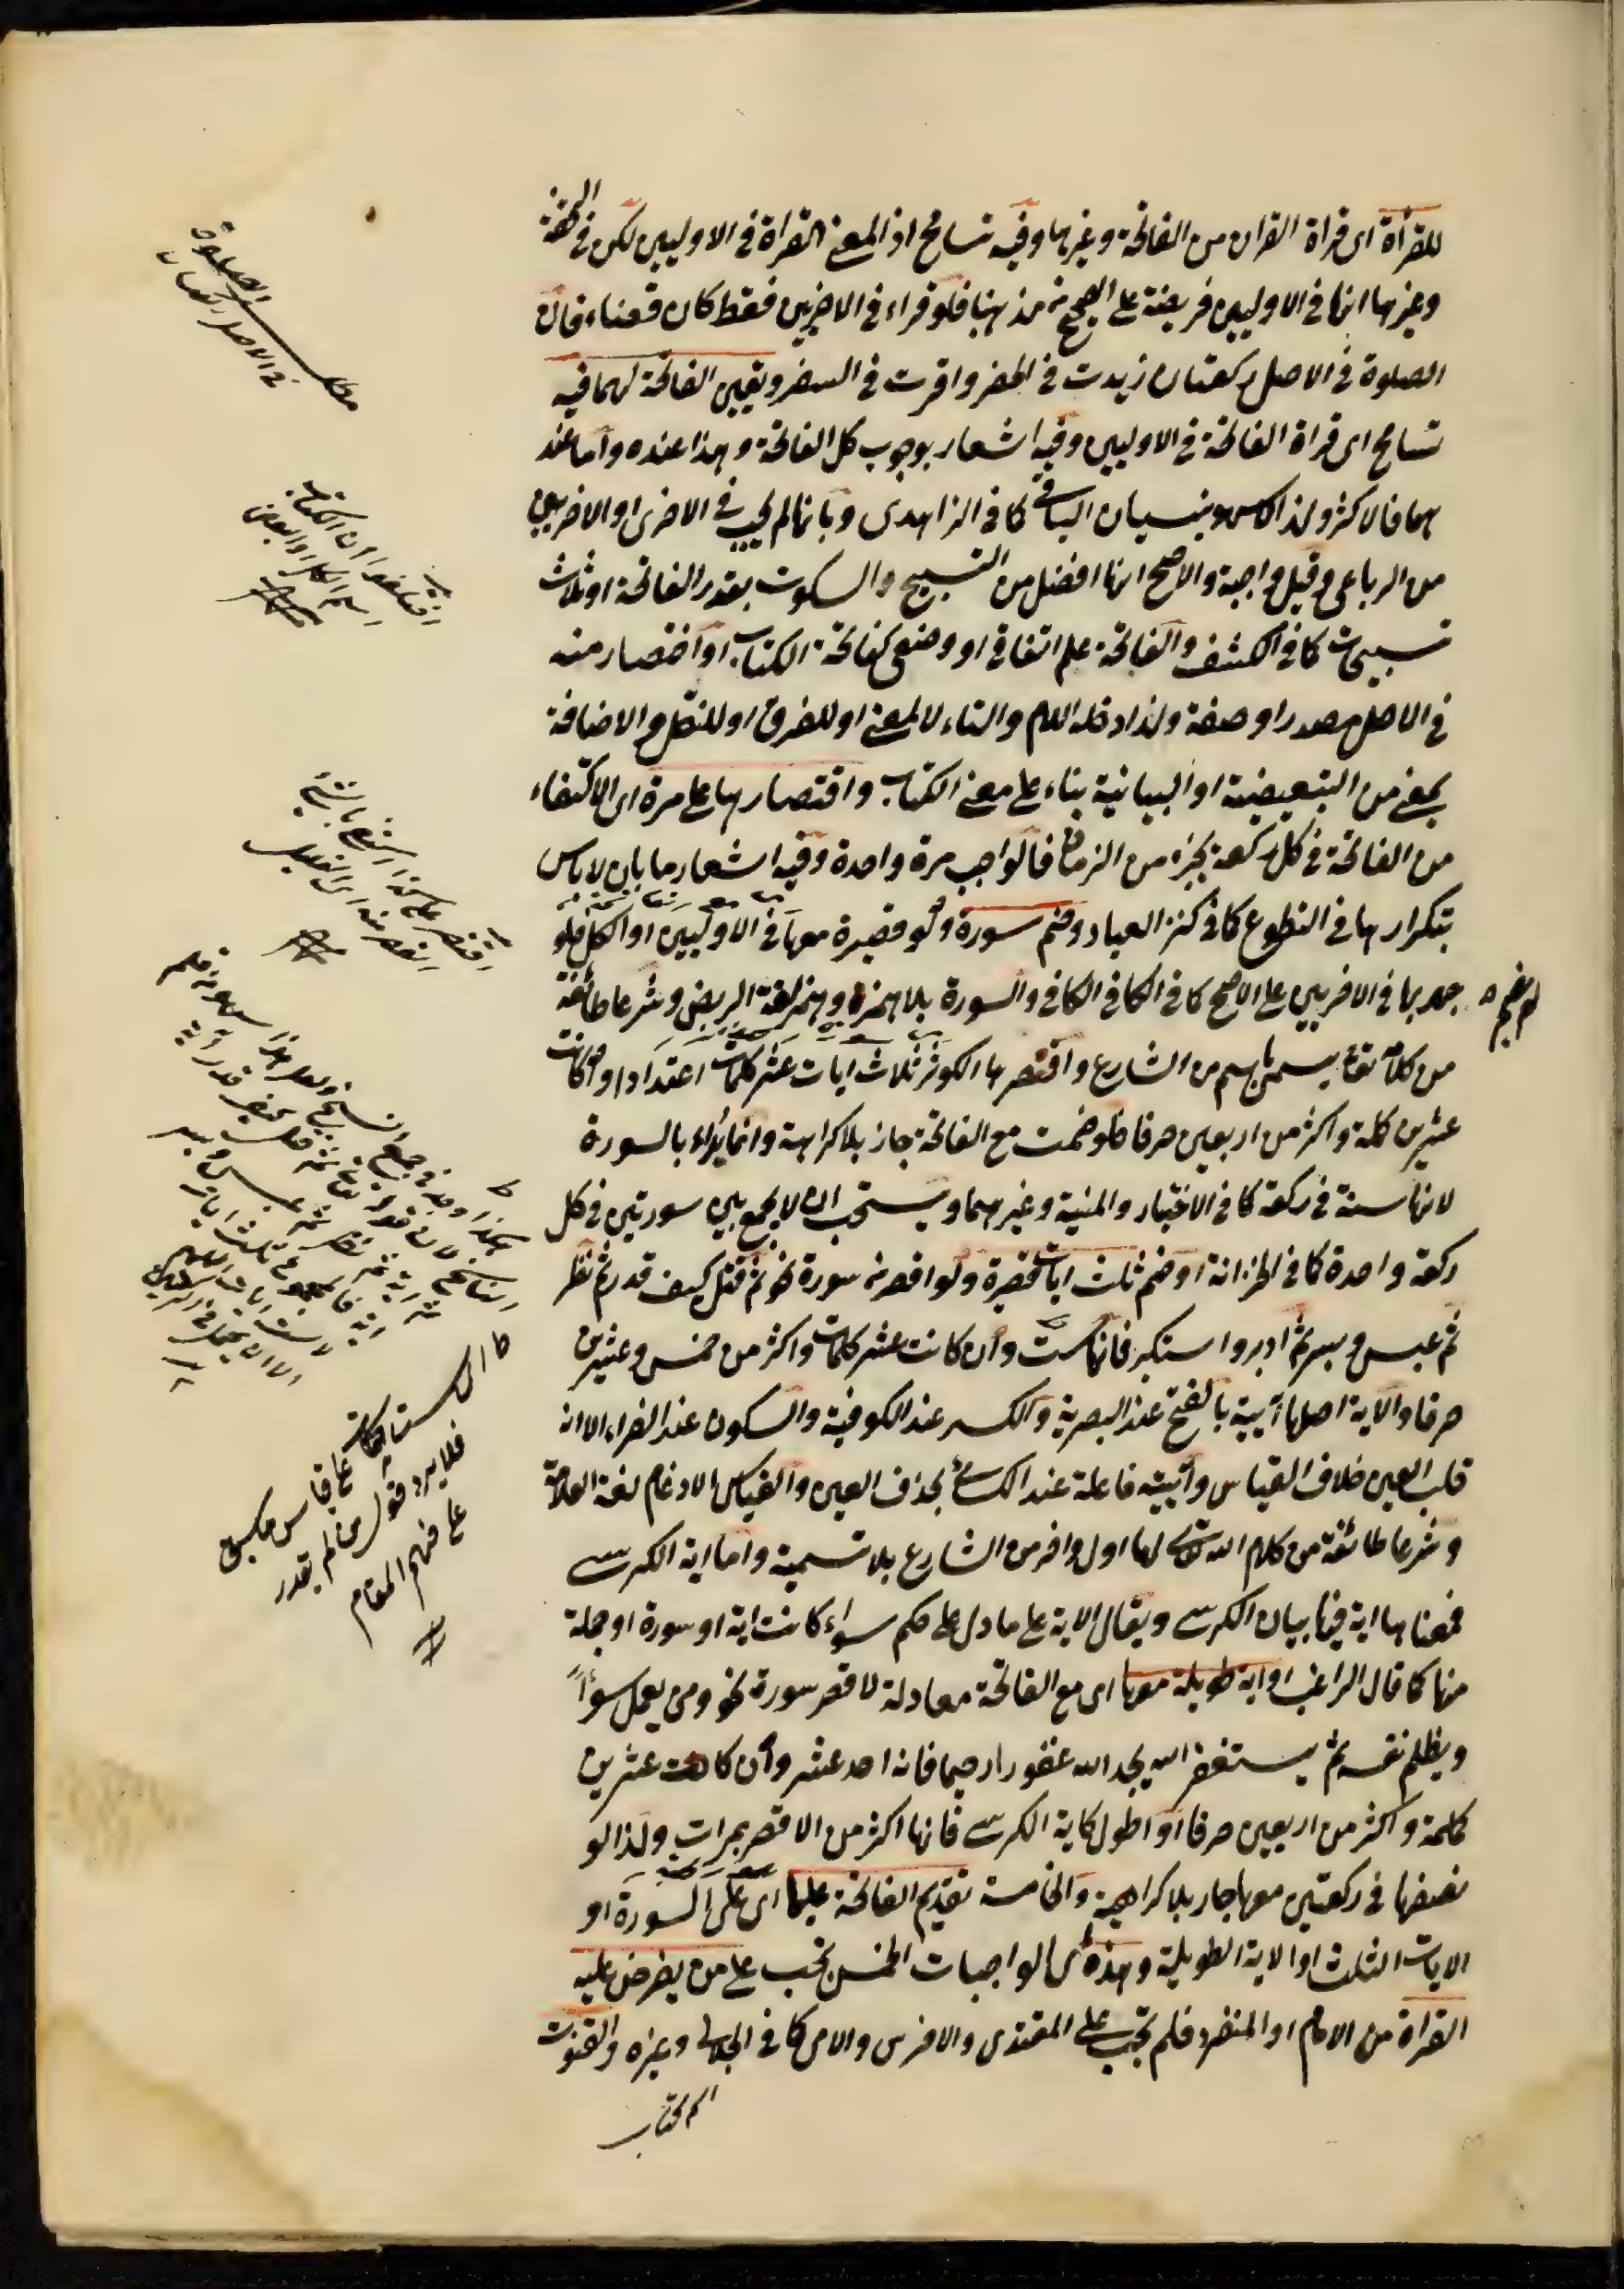 للقرأة اى قراة القران من الفاتحة وغيرها وفيه تسامح اذ المعنى القراة فى الاوليين لكن فى التحفة
وغيرها انها فى الاوليين فريضة على الصحيح من مذهبنا فلو قراء فى الاخريين فقط كان قضاء فان
الصلوة فى الاصل ركعتان زيدت فى الحضر واقرت فى السفر وتعيين الفاتحة لهما فيه
تسامح اى قراة الفاتحة فى الاوليين وفيه اشعار بوجوب كل الفاتحة وهذا عنده واما عند
هما فالاكثر ولذا لا سهو بنسيان الباقى كما فى الزاهدى وبانها لم تجب فى الاخرى او الاخريين
من الرباعى وقيل واجبة والاصح انها افضل من التسبيح والسكوت بقدر الفاتحة او ثلاث
تسبيحات كما فى الكشف والفاتحة علم اتفاقى او وضعى كفاتحة الكتاب او اختصار منه
فى الاصل مصدر او صفة ولذا دخله اللام والتاء لا لمعنى او للفرق او للنقل والاضافة
بمعنى من التبعيضية او البيانية بناء على معنى الكتاب واقتصارها على مرة اى الاكتفاء
من الفاتحة فى كل ركعة بجزء من الزمان فالواجب مرة واحدة وفيه اشعار ما بان لا باس
بتكرارها فى التطوع كما فى كنز العباد وضم سورة ولو قصيرة معها فى الاوليين او الكل فلو
لم يضم ه جهر بها فى الاخريين على الاصح كما فى الكافى والسورة بلا همزة وبهمز لغة الربض وشرعا طائفة
من كلامه تعالى يسمى باسم من الشارع واقصرها الكوثر ثلاث ايات عشر كلمات اعتدادا وان كانت
عشرين كلمة واكثر من اربعين حرفا فلو ضمت مع الفاتحة جاز بلا كراهة وانما يزاد بالسورة
لانها سنة فى ركعة كما فى الاختيار والمنية وغيرهما ويستحب ان لا يجمع بين سورتين فى كل
ركعة واحدة كما فى الخزانة او ضم ثلث ايات قصيرة ولو اقصر من سورة نحو ثم قتل كيف قدر ثم نظر
ثم عبس وبسر ثم ادبر واستكبر فانها ست وان كانت عشر كلمات واكثر من خمس وعشرين
حرفا والاية اصلها اَيَيَة بالفتح عند البصرية والكسر عند الكوفية والسكون عند الفراء الا انه
قلب العين خلاف القياس وآيية فاعلة عند الكسائى بحذف العين والقياس الادغام لغة العلامة
وشرعا طائفة من كلام الله تعالى لها اول واخر من الشارع بلا تسمية واما اية الكرسى
فمعناها اية فيها بيان الكرسى ويقال الاية على ما دل على حكم سواء كانت اية او سورة او جملة
منها كما قال الراغب او اية طويلة معها اى مع الفاتحة معادلة لاقصر سورة نحو ومن يعمل سوأً
ويظلم نفسه ثم يستغفر الله يجد الله غفورا رحيما فانه احد عشر وان كانت عشرين
كلمة واكثر من اربعين حرفا او اطول كاية الكرسى فانها اكثر من الاقصر بمرات ولذا لو
نصفها فى ركعتين معها جاز بلا كراهية والخامسة تقديم الفاتحة عليها اى على السورة او
الايات الثلث او الاية الطويلة وهذه اى الواجبات الخمس تجب على من يفرض عليه
القراة من الامام او المنفرد فلم تجب على المقتدى والاخرس والامى كما فى الجلابى وغيره والقنوت
مطلب الصلوة
فى الاصل ركعتان
اختلفوا ان الكتاب
اسم الكل او البعض
اى لا ست كلمات
على قياس ما سبق
فلا يرد قول من لم يقدر
على فهم المقام